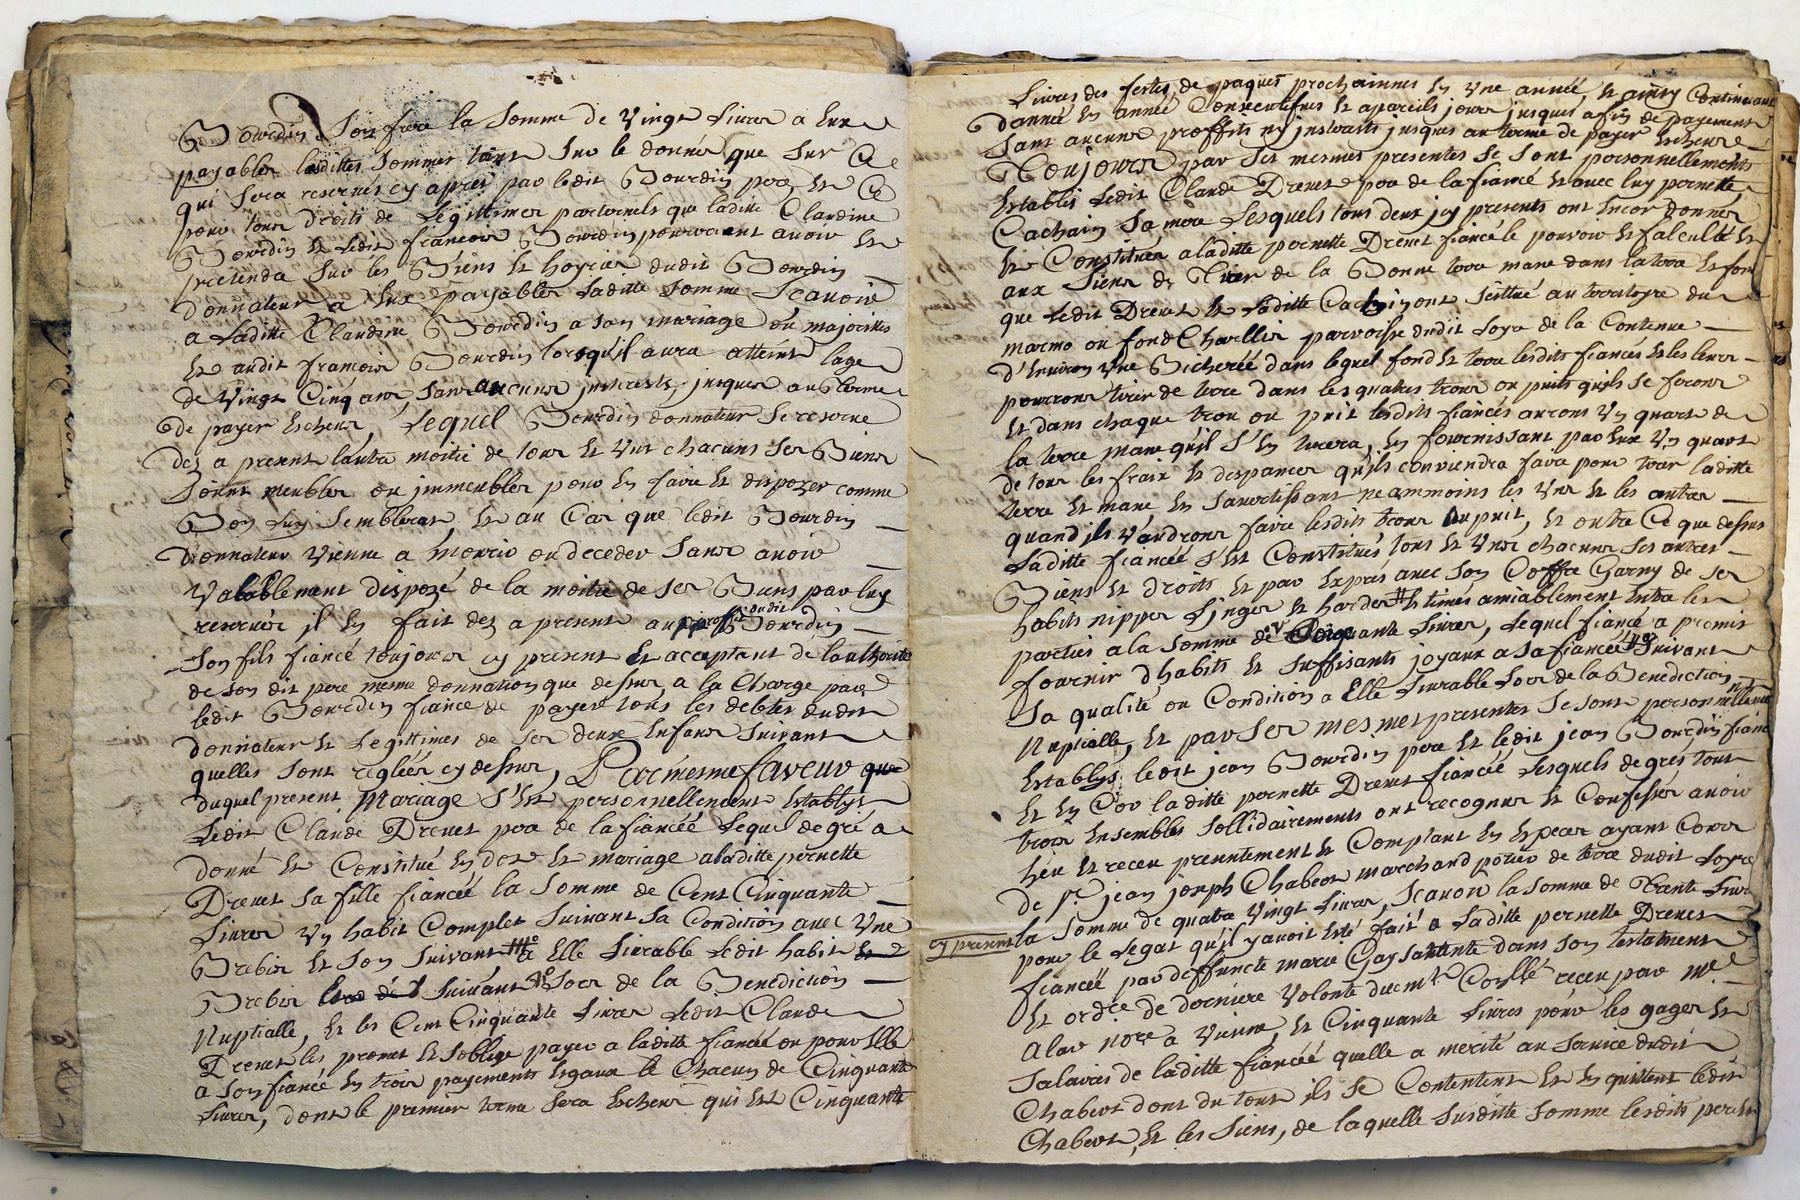 Bourdin Son frere la Somme de Vingt Livres a Eux
payables lesdittes Sommes tant Sur le donné que Sur Ce
qui Sera reservé cy apres par ledit Bourdin pere, Et Ce
pour tous droits de Legittimes paternels que ladite Claudine
Bourdin Et Ledit francois Bourdin pourroient avoir Et
pretendre Sur les Biens Et hoyries dudit Bourdin
donnateur a Eux payables Laditte Somme Scauoir
a Laditte Claudine Bourdin a Son mariage ou majorités
Et audit francois Bourdin lorsqu'il aura atteint lage
de Vingt Cinq ans, Sans aucuns jnterests jusques au terme
de payer Escheus, Lequel Bourdin donnateur Se reserve
dez a present lautre moitié de tous Et Uns chacuns Ses Biens
Soint meubles ou jmmeubles pour En faire Et dispozer comme
Bon Luy Semblerat, Et au Cas que ledit Bourdin
donnateur Vienne a mourir ou deceder Sans avoir
Valablement dispozé de la moitié de Ses Biens par luy
reservés il En fait dez a present au proffit dudit Bourdin
Son fils fiancé toujours cy present Et acceptant de lauthorité
de Son dit pere meme donnation que dessus, a la Charge par
ledit Bourdin fiancé de payer tous les debtes dudit
donnateur Et Legittimes de Ses deux Enfans Suivant
quelles Sont regléés cy dessus, Par mesme faveur que
duquel present Mariage S'Est personnellement Establys
Ledit Claude Drevet pere de la fiancéé Lequel de gré a
donné Et Constitué En dot Et mariage a laditte pernette
Drevet Sa fille fiancéé la Somme de Cent Cinquante
Livres Un habit Complet Suivant Sa Condition avec Une
Brebis Et Son Suivant a Elle Livrable Ledit habit Et
Brebis Suivant Lors de la Benediction
Nuptialle, Et les Cent Cinquante Livres Ledit Claude
Drevet les promet Et Soblige payer a laditte fiancéé ou pour Elle
a Son fiancé En trois payements Egaux Et Chacun de Cinquante
Livres, dont le premier terme Sera Escheus qui Est Cinquante
Livres des festes de paques prochaines En Une année, Et ainsy Continuant
d'année En année Consecutives Et apareils jours jusques afin de payement
Sans aucuns proffits ny jnterests jusques au terme de payer Escheus
Toujours par Ses mesmes presentes Se Sont personnellements
Establis Ledit Claude Drevet pere de la fiancé Et avec luy pernette
Cachain Sa mere Lesquels tous deux jcy presents ont Encor donnér
Et Constituér a laditte pernette Drevet fiancéé le pouvoir Et faculté Et
aux Siens de Tirer de la Bonne terre mane dans la terre Et fond
que Ledit Drevet Et Laditte Cachain ont Scittué au territoyre du
marmo ou fond Charllin parroisse dudit Loyre de la Contenue
d'Environ Une Bicheréé dans lequel fond Et terre lesdits fiancés Et les leurs
pourrons tirer de terre dans les quatres trous ou puits qu'ils Se ferons
Et dans chaque trou ou puit lesdits fiancés aurons Un quart de
la terre mane qu'il S'En tirera, En fournissant par Eux Un quart
de tous les fraix Et despances qu'ils conviendra faire pour tirer laditte
terre Et mane En Sanertissant neammoins les Uns Et les autres
quand ils Vaudrons faire lesdits trous ou puit, Et outre Ce que dessus
Laditte fiancéé S'Est Constitués tous Et Uns chacuns Ses autres
Biens Et droits Et par Exprés avec Son Coffre Garny de Ses
habits nippes Linges Et hardes Estimés amiablement Entre les
parties a la Somme de Cinquante Livres, Lequel fiancé a promit
fournir d'habits Et Suffisants joyaux a Sa fiancéé Suivant
Sa qualité ou Condition a Elle Livrable Lors de la Benediction
Nuptialle, Et par Ses mesmes presentes Se Sont personnellements
Establys ledit jean Bourdin pere Et ledit jean Bourdin fiancé
Et En Cor laditte pernette Drevet fiancéé Lesquels de grés tout
trois Ensembles Sollidairements ont recognus Et Confessér avoir
heu Et receu presentement Et Comptant En Especes ayant Cours
de Sr. jean joseph Chabert marchand potier de terre dudit Loyre
cy present la Somme de quatre Vingt Livres, Scavoir la Somme de Trente Livres
pour le Legat qu'il y avoit Esté fait a Laditte pernette Drevet
fiancéé par deffuncte marie Gay Sa tante dans Son testament
Et ordre de derniere Volonté receu par me.
a Vienne, Et Cinquante Livres pour les gages Et
Salaires de laditte fiancéé quelle a merité au Service dudit
Chabert dont du tout ils Se Contentent Et En quittent ledit
Chabert, Et les Siens, de laquelle Susditte Somme lesdits pere Et